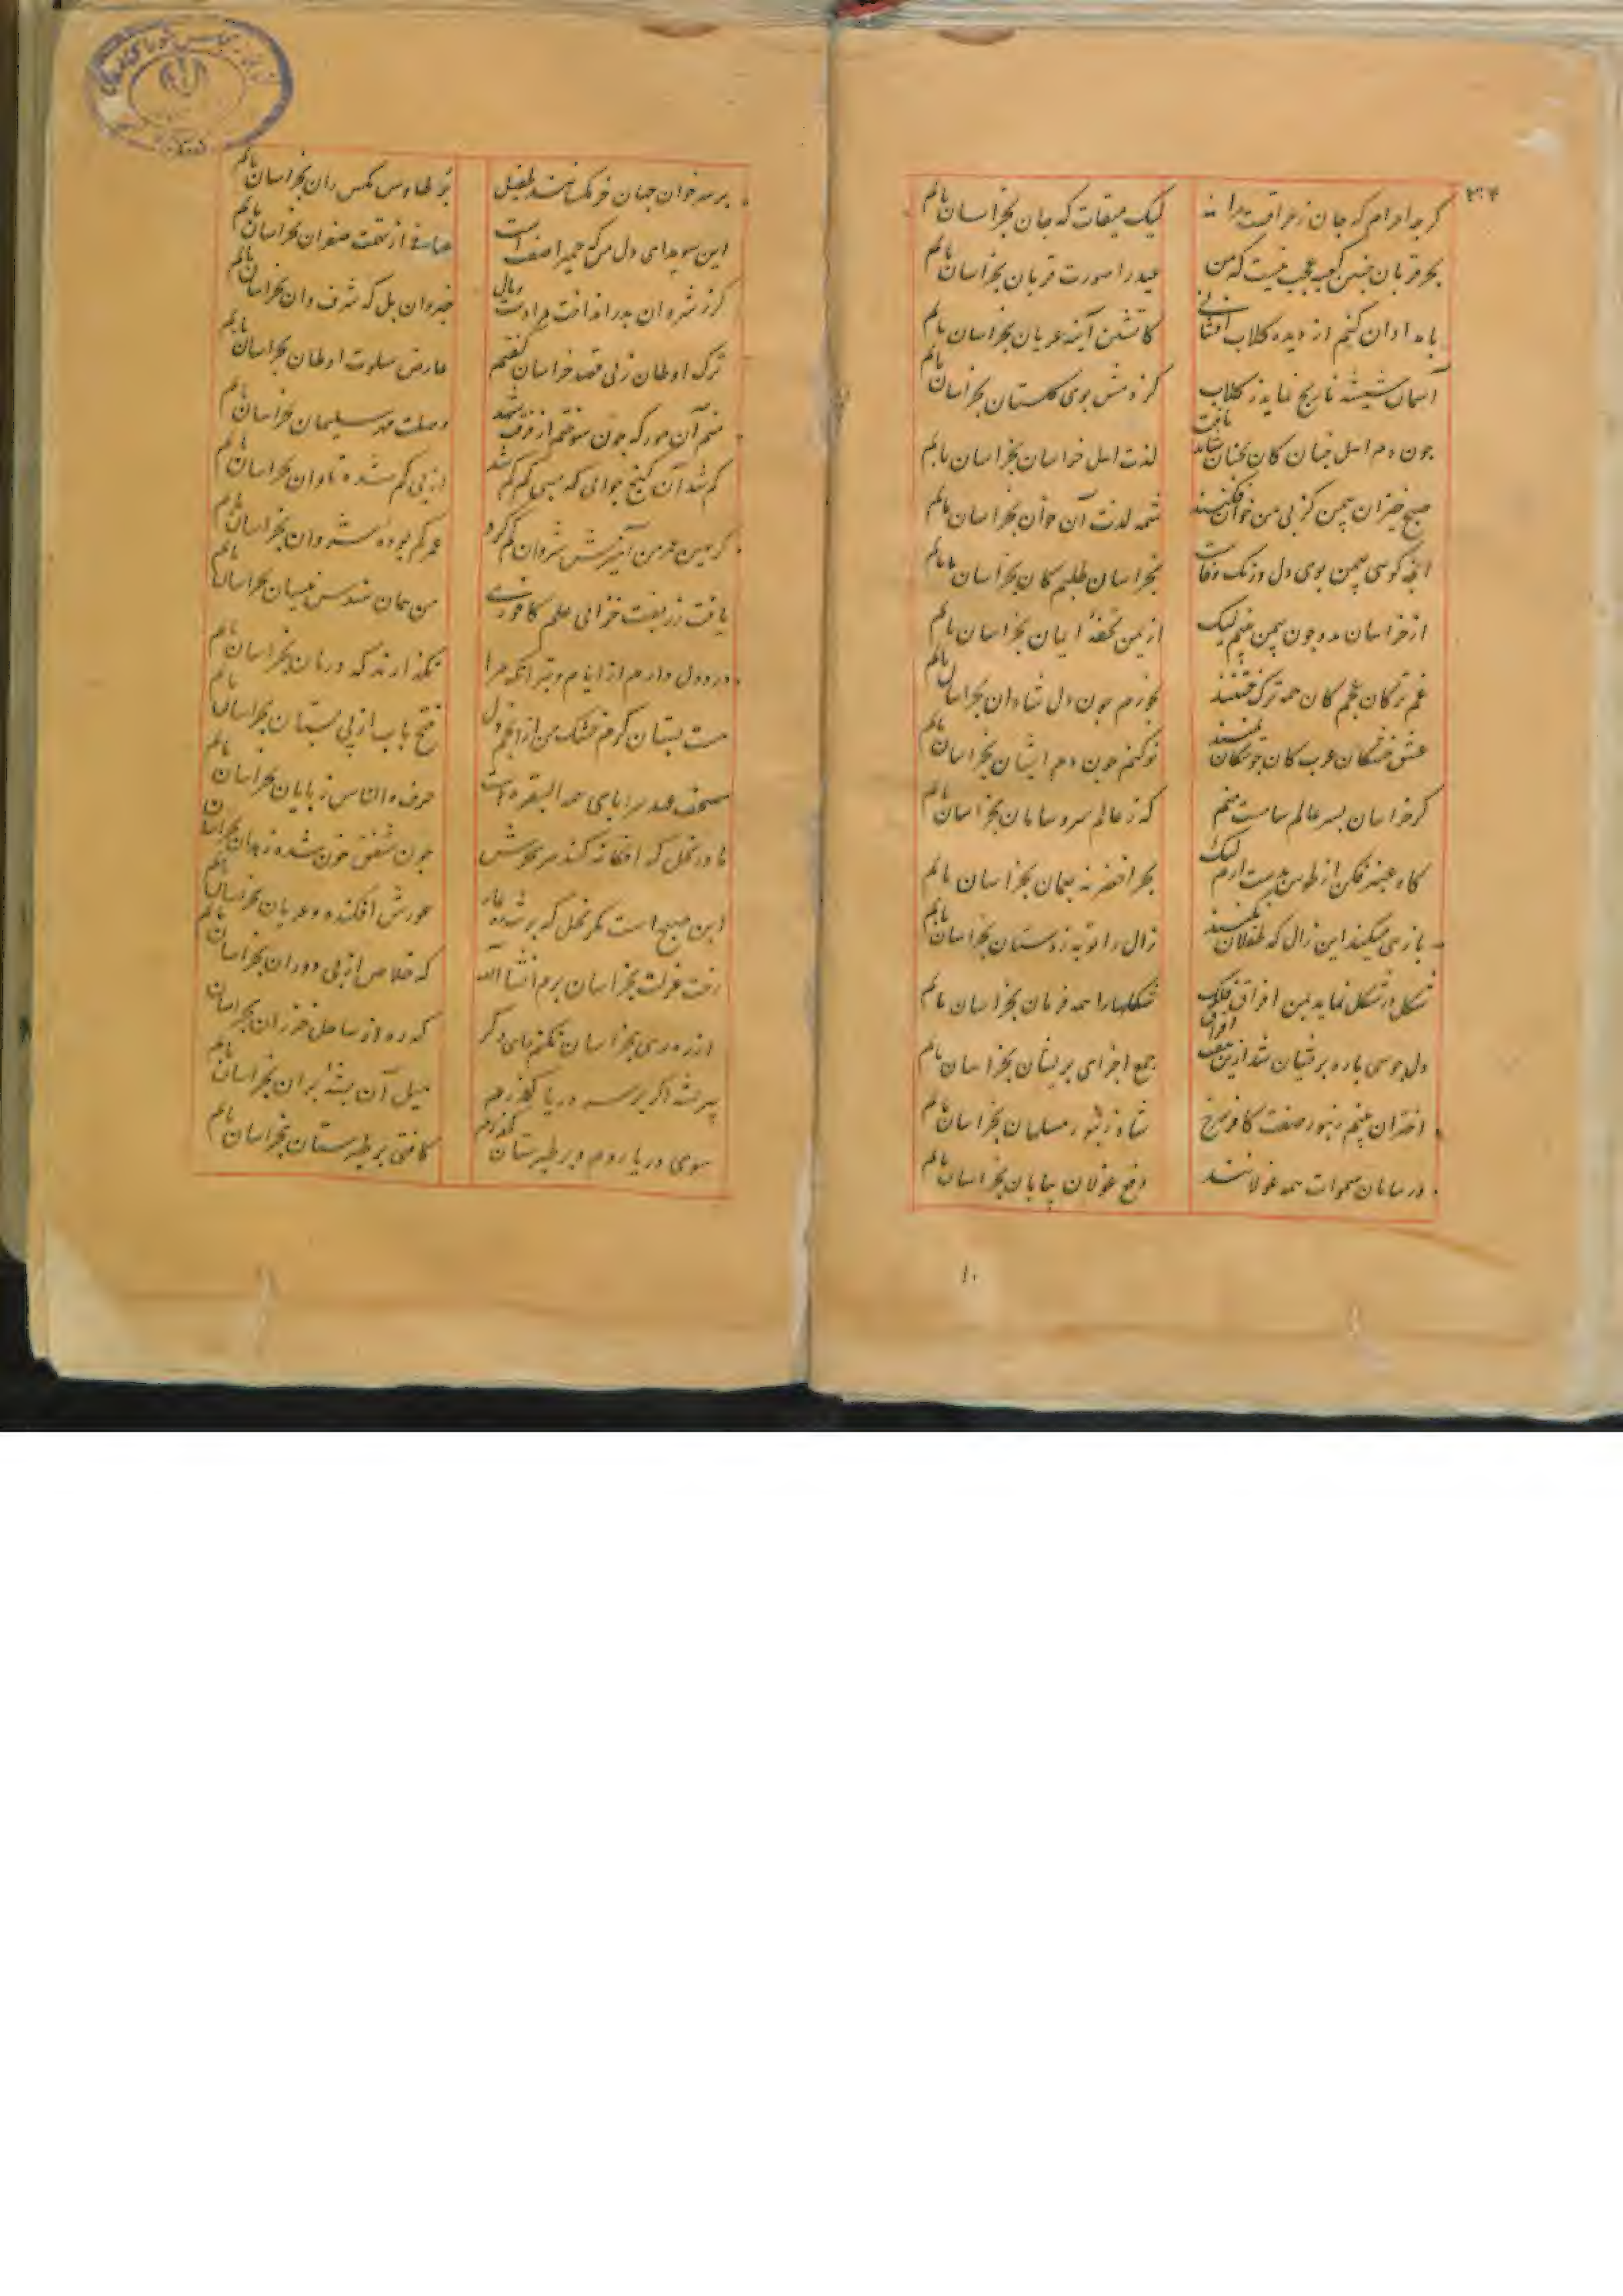 ۲۳۴
گر چه احرام گه جان ز عراقست مرا لیک میقات گه جان بخراسان یابم
بحر قربان چنین کعبه عجب نیست که من عید را صورت قربان بخراسان یابم
بامدادان کنم از دیده گلاب افشانی کاتشین آینه عریان بخراسان یابم
آسمان شیشه نارنج نماید ز گلاب کز دمش بوی گلستان بخراسان یابم
چون دم اهل جنان کان بجنان شاید یافت لذت اهل خراسان بخراسان یابم
صبح خیزان چمن کز پی من خوان فکنند شمه لذت آن خوان بخراسان یابم
بخراسان طلبم کان بخراسان یابم
از خراسان مدد چون یمن بینم لیک از یمن تحفه ایمان بخراسان یابم
غم ترکان عجم کان همه ترک ختنند نخورم چون دل شادان بخراسان یابم
عشق خشکان عرب کان خنکان یمنند نو کنم چون دم ایشان بخراسان یابم
گر خراسان پسر عالم سامست منم که ز عالم سر و سامان بخراسان یابم
گاه عنبر فکن از طوس بدست آرم لیک بحر اخضر نه بعمان بخراسان یابم
بازیی میکند این زال که طفلان نکنند زال را توبه ز دستان بخراسان یابم
شکل در شکل نماید بمن اوراق فلک شکلها را همه فرمان بخراسان یابم
دل چو سی پاره پریشان شد ازین هفت اوراق جمع اجزای پریشان بخراسان یابم
اختران بینم زنبور صفت کافر سرخ شاه زنبور مسلمان بخراسان یابم
در بیابان سموات همه غولانند دفع غولان بیابان بخراسان یابم
۱۰
بر سر خوان جهان خرمگسانند طفیل پر طاوس مگس ران بخراسان یابم
این سویدای دل من که حمیرا صفت است صافی از تهمت صفوان بخراسان یابم
گر ز شروان بدر انداخت مرا دست وبال خیروان بل که شرف وان بخراسان یابم
ترک اوطان ز پی قصد خراسان گفتم عارض سلوت اوطان بخراسان یابم
منم آن مور که چون سوختم از فرقت وصلت مهر سلیمان بخراسان یابم
گم شد آن گنج جوانی که بسی کم کم شد از پی گم شده تاوان بخراسان یابم
گر بهین عمر من آمیزش شروان گم کرد عمر گم بوده شروان بخراسان یابم
یافت زربفت خزانی علم کافوری من همان سندس نیسان بخراسان یابم
درد دل دارم از ایام و بتر آنکه مرا نگذارند که درمان بخراسان یابم
هست پستان کرم خشک من از انجم دل فتح باب از پی پستان بخراسان یابم
مصحف عهد سراپای همه البقره است حرف والناس ز پایان بخراسان یابم
مادر نخل که افکانه کند هر سحرش چون شفق خون شده زهدان بخراسان یابم
این صبح است مگر نخل که بر شه ره غار عورش افکنده و عریان بخراسان یابم
رخت عزلت بخراسان برم انشاالله که خلاص از پی دوران بخراسان یابم
از ره ری بخراسان نکنم رای دگر که ره از ساحل خزران بخراسان یابم
پیر تشنه اگر برسد دریا گذرم میل آن تشنه بران بخراسان یابم
سوی دریا روم و بر طبرستان گذرم کافتی بر طبرستان بخراسان یابم